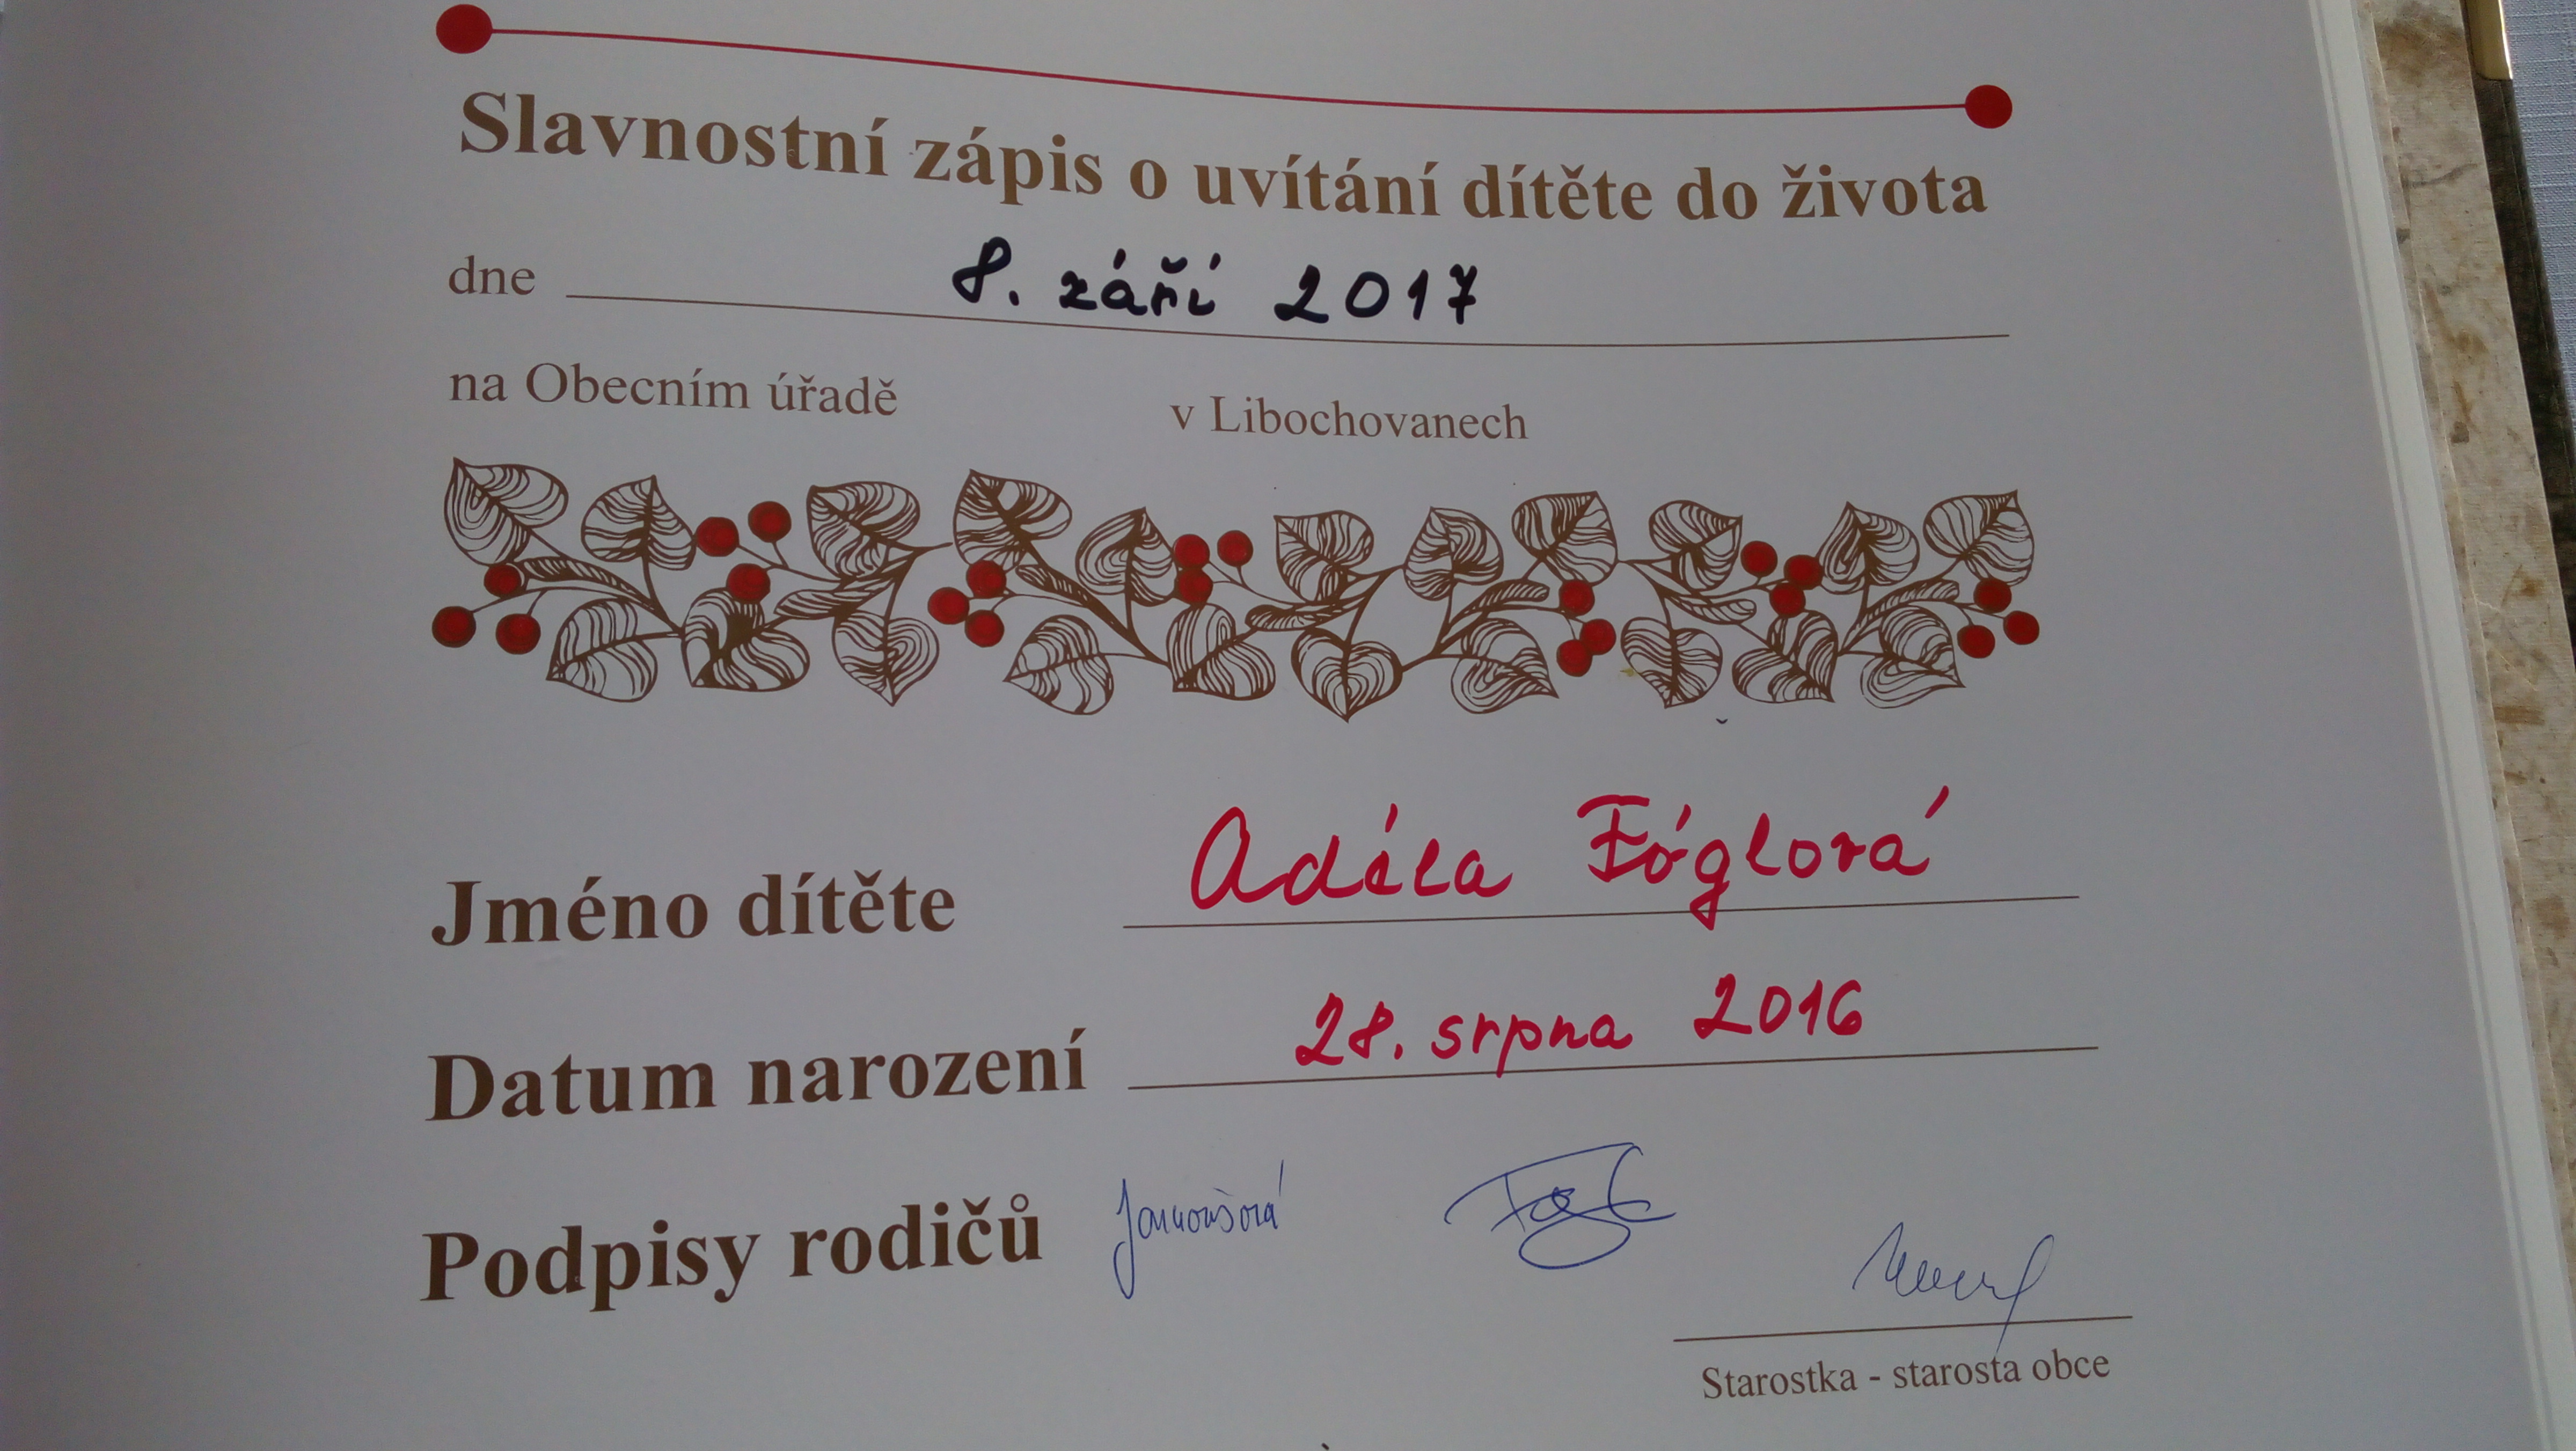 Slavnostní zápis o uvítání dítěte do života
dne 8. září 2017
na Obecním úřadě v Libochovanech
Jméno dítěte Adéla Fóglová
Datum narození 28. srpna 2016
Podpisy rodičů
Starostka - starosta obce